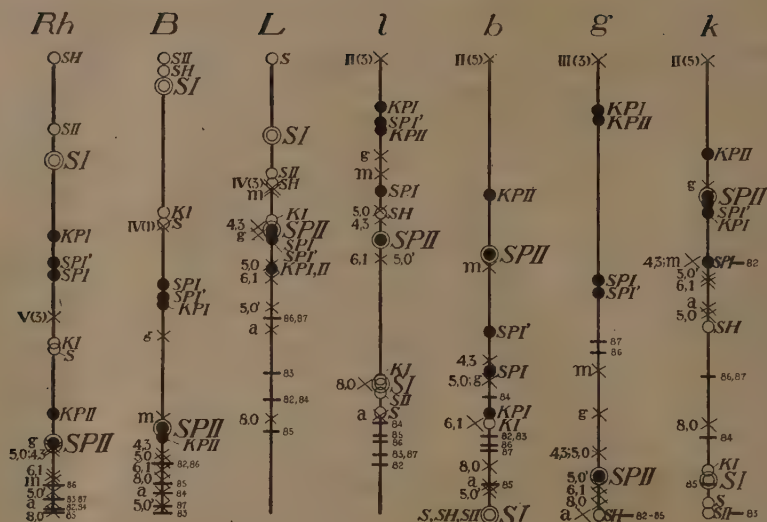 Rh B L l b g k
SH
SII
SI
KPI
SPI'
SPI
V(3)
KI
S
KPII
g SPII
5,0; 4,3
6,1
m 86
5,0' 83 87
a 82,84
8,0 85
SII
SH
SI
KI
IV(1) S
SPI,
SPI'
KPI
g
m
SPII
4,3 KPII
5,0
6,1 82,86
8,0 85
a 84
5,0' 87
83
S
SI
SII
IV(3) SH
m
KI
4,3 SPII
g SPI
SPI'
5,0 KPI,II
6,1
5,0'
86,87
a
83
82,84
8,0
85
II(3)
KPI
SPI'
KPII
g
m
SPI
5,0 SH
4,3
SPII
6,1 5,0'
KI
8,0 SI
SII
a S
84
85
86
83,87
82
II(5)
KPII
SPII
m
SPI'
4,3
SPI
5,0; g
84
KPI
6,1 KI
82,83
86
87
8,0
a 85
5,0'
S, SH, SII SI
III(3)
KPI
KPII
SPI
SPI'
87
86
m
g
4,3; 5,0
5,0' SPII
6,1
8,0
a SH 82-85
II(5)
KPII
g
SPII
SPI'
KPI
4,3; m SPI 82
5,0'
6,1
a
5,0
SH
86,87
8,0
84
KI
85 SI
S
SII 83